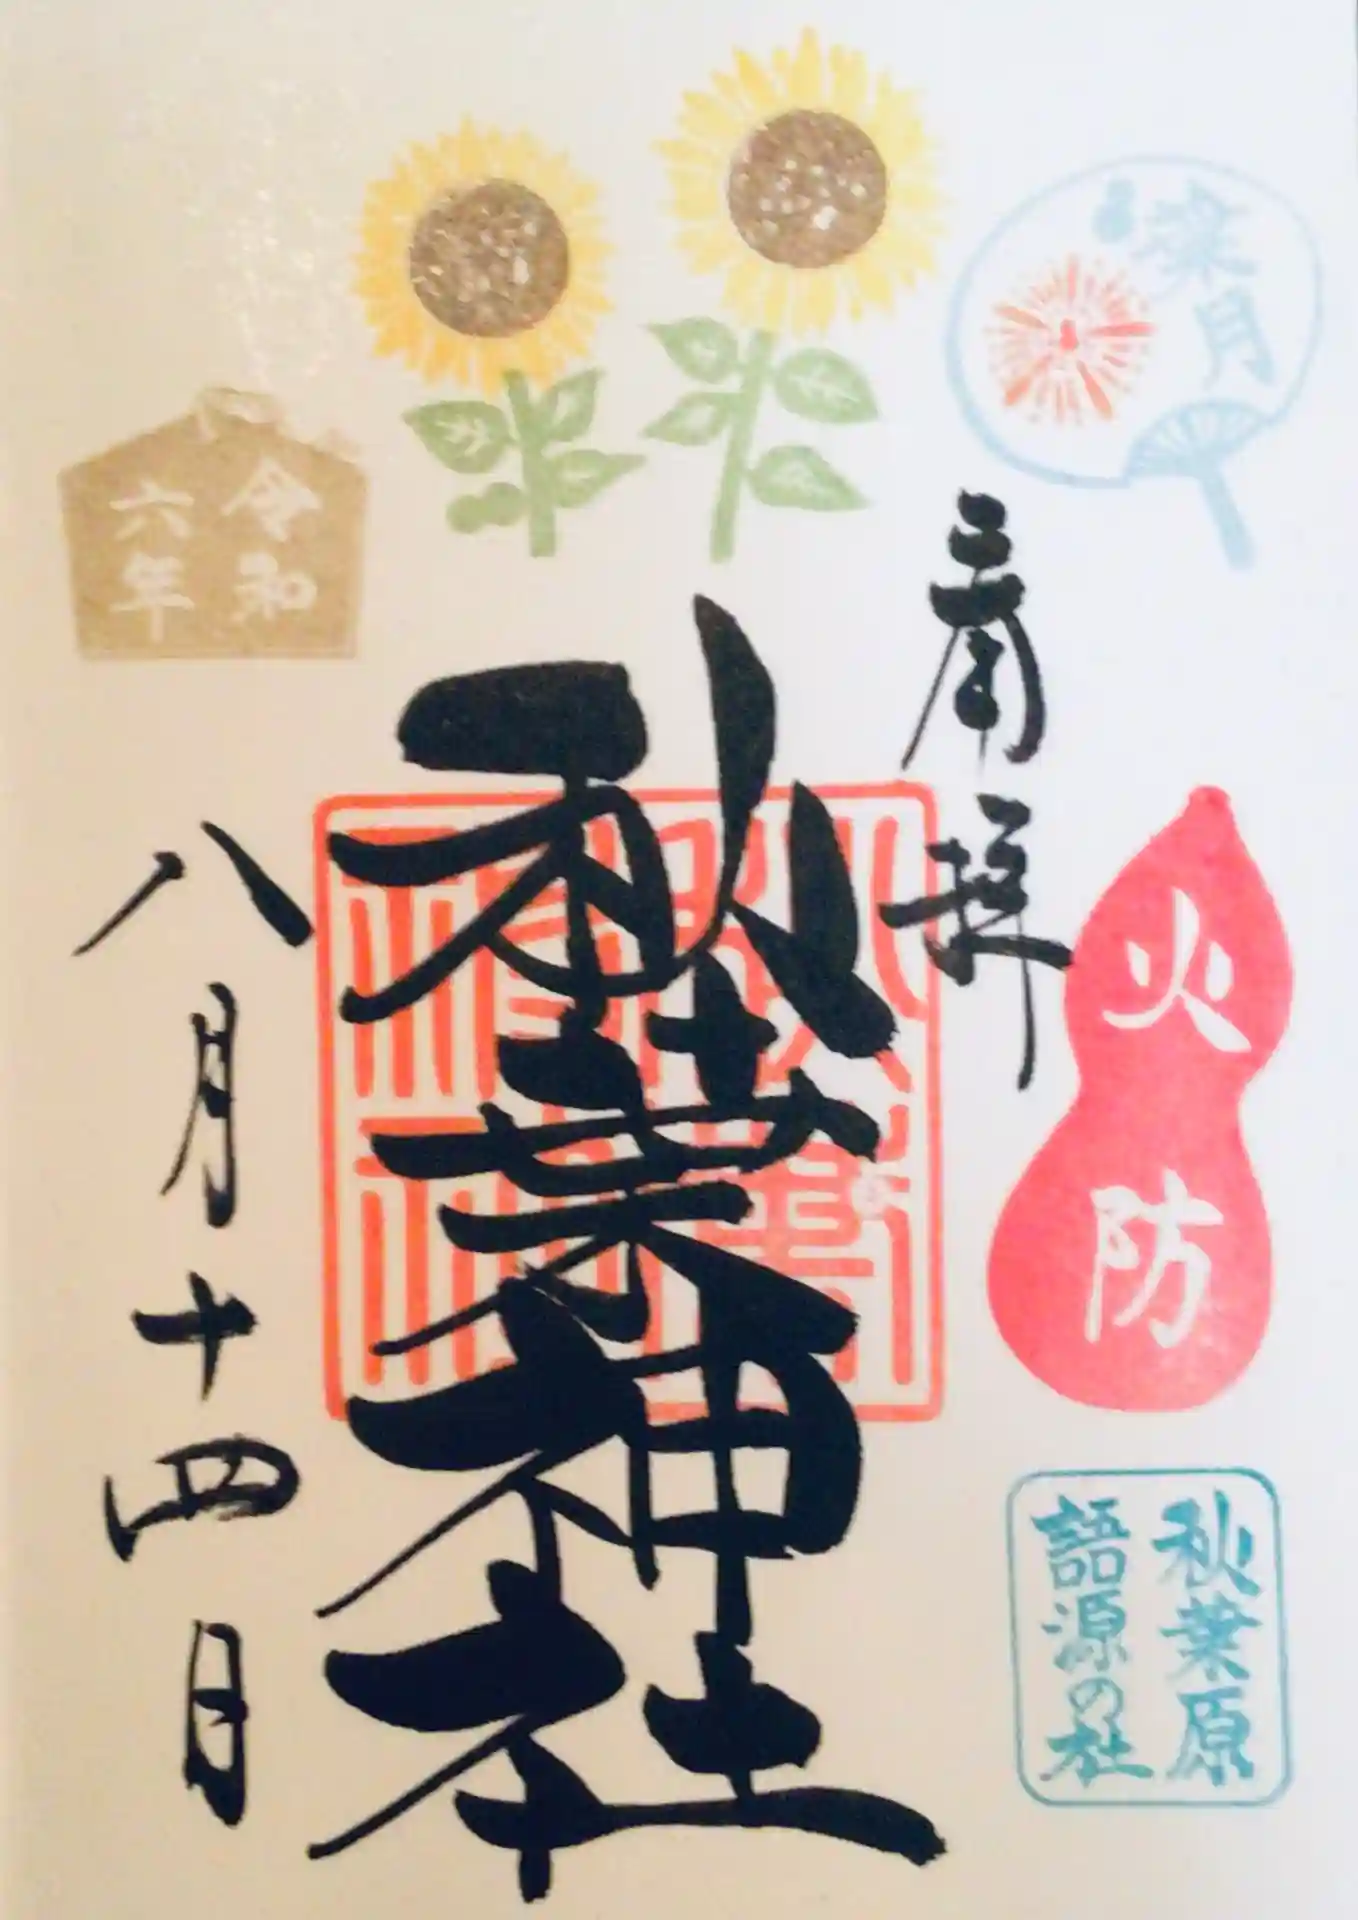 葉月
奉拝
火防
秋葉原
語源の社
秋葉神社
令和
六年
八月十四日